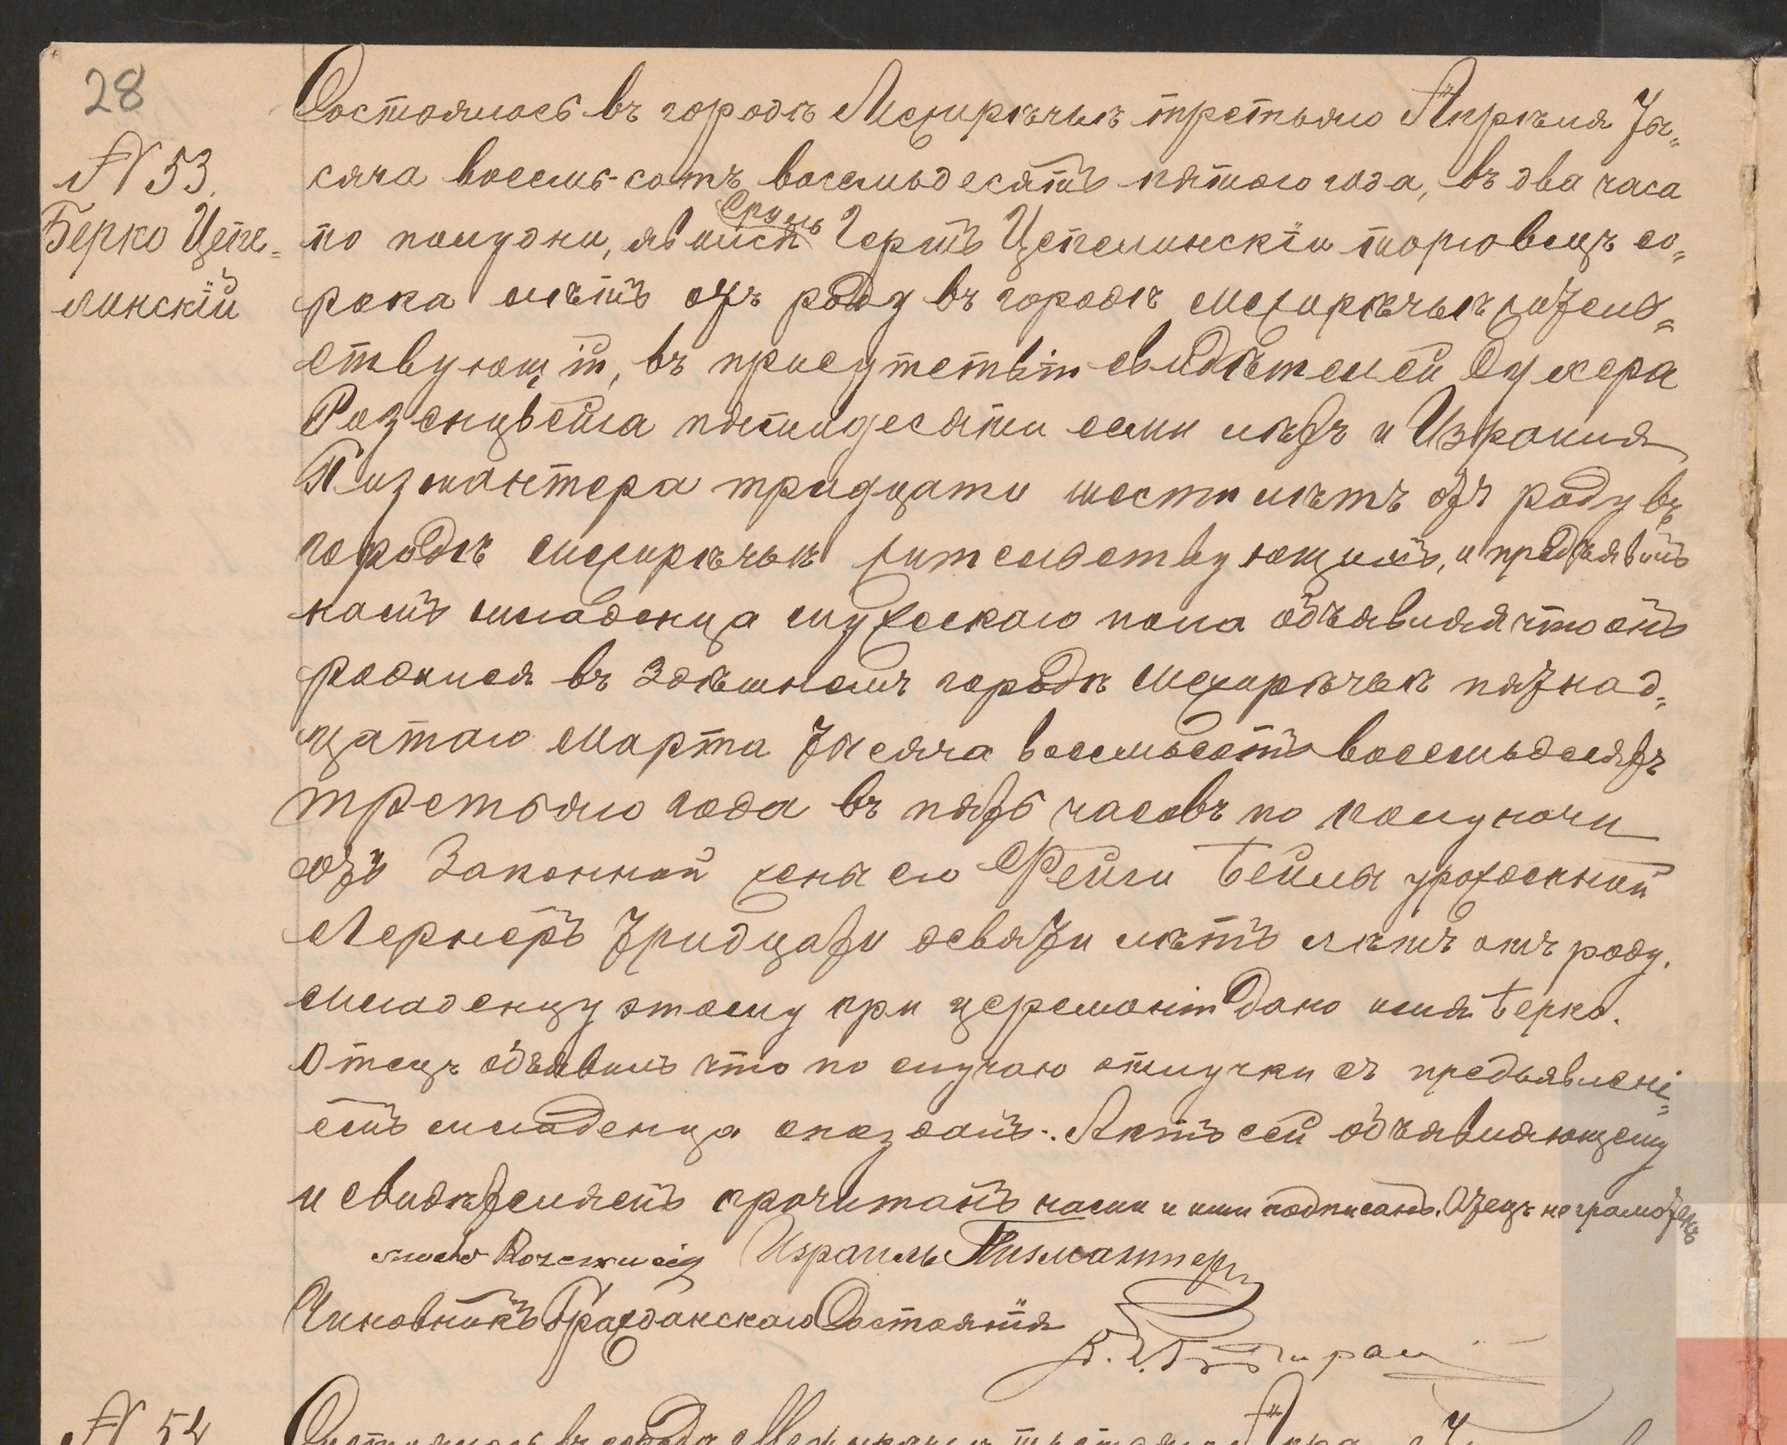 28
№ 53.
Берко Цепе-
линскій
Состоялось въ городѣ Межирѣчьѣ третьяго Апрѣля Ты-
сяча восемь-сотъ восемьдесятъ пятаго года, въ два часа
по полудни, явился Сруль Герть Цепелинскій торговецъ со-
рока лѣтъ отъ роду въ городѣ Межирѣчьѣ житель-
ствующій, въ присутствіи свидѣтелей Сухера
Розенцвейга пятидесяти семи лѣтъ и Израиля
Пизмантера тридцати шести лѣтъ отъ роду въ
городѣ Межирѣчьѣ жительствующихъ, и предъявилъ
намъ младенца мужескаго пола объявляя что онъ
родился въ здѣшнемъ городѣ Межирѣчьѣ пятнад-
цатаго Марта Тысяча восемьсотъ восемьдесятъ
третьяго года въ пять часовъ по полуночи
отъ Законной жены его Фейги Бейлы урожденной
Лернеръ Тридцати девяти лѣтъ лѣтъ отъ роду.
Младенцу этому при церемоніи дано имя Берко.
Отецъ объявилъ что по случаю отлучки съ предъявлені-
емъ младенца опоздалъ. Актъ сей объявляющему
и свидѣтелямъ прочитанъ нами и ими подписанъ. Отецъ неграмотенъ
Израиль Пизмантеръ
Чиновникъ Гражданскаго Состоянія
№ 54
Состоялось въ городѣ Межирѣчьѣ третьяго Апрѣля